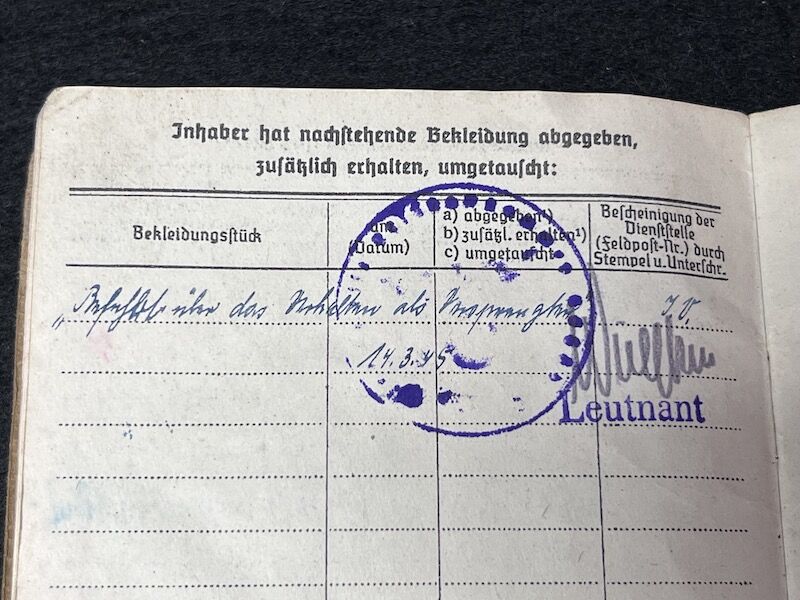 Inhaber hat nachstehende Bekleidung abgegeben,
zusätzlich erhalten, umgetauscht:
Bekleidungsstück
am
(Datum)
a) abgegeben¹)
b) zusätzl. erhalten¹)
c) umgetauscht
Bescheinigung der
Dienststelle
(Feldpost-Nr.) durch
Stempel u. Unterschr.
über das Verhalten als Versprengter"
14.3.45
Leutnant